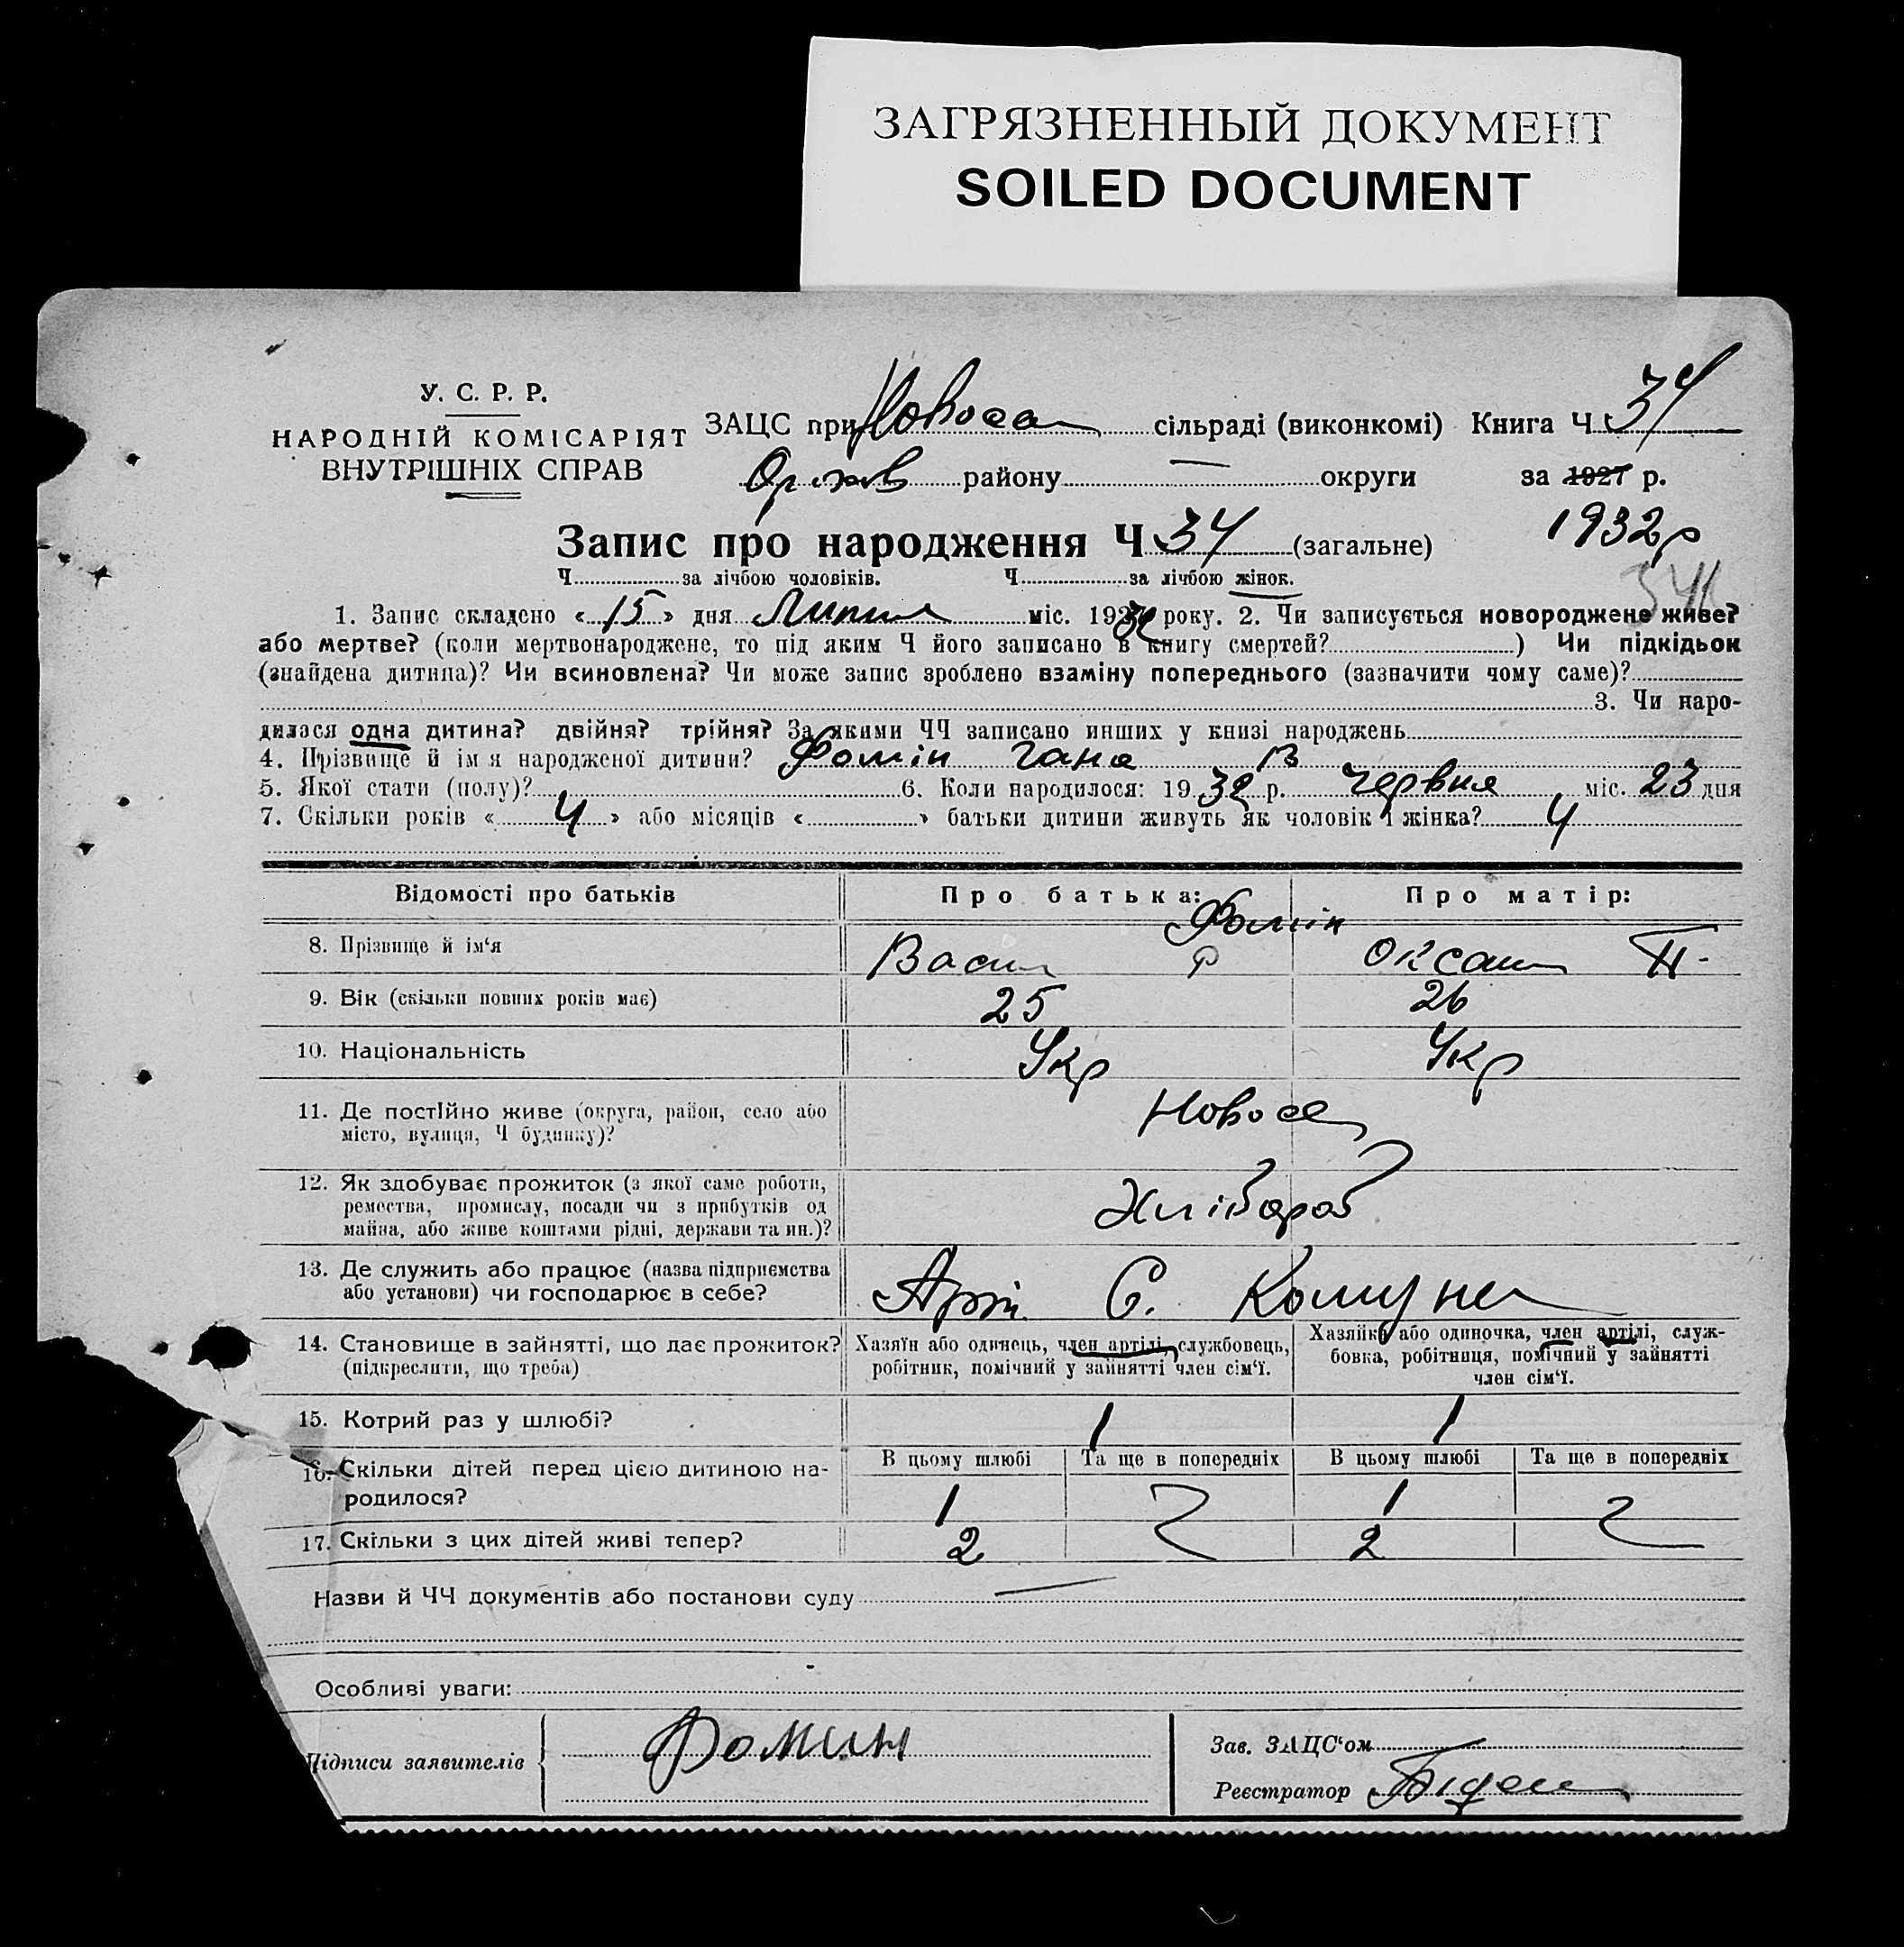 ЗАГРЯЗНЕННЫЙ ДОКУМЕНТ
SOILED DOCUMENT
У. С. Р. Р.
НАРОДНІЙ КОМІСАРІЯТ
ВНУТРІШНІХ СПРАВ
ЗАЦС при сільраді (виконкомі) Книга Ч 34
Оріхов району — округи за 1927 р.
1932 р
Запис про народження Ч 34 (загальне)
Ч за лічбою чоловіків. Ч за лічбою жінок.
341
1. Запис складено « 15 » дня Липня міс. 1932 року. 2. Чи записується новороджене живе?
або мертве? (коли мертвонароджене, то під яким Ч його записано в книгу смертей? ) Чи підкідьок
(знайдена дитина)? Чи всиновлена? Чи може запис зроблено взаміну попереднього (зазначити чому саме)?
3. Чи наро-
дилася одна дитина? двійня? трійня? За якими ЧЧ записано инших у книзі народжень
4. Прізвище й ім я народженої дитини? Фомін Гана В
5. Якої стати (полу)? 6. Коли народилося: 19 32 р. червня міс. 23 дня
7. Скільки років « 4 » або місяців « » батьки дитини живуть як чоловік і жінка? 4
Відомості про батьків Про батька: Про матір:
Фомін
8. Прізвище й ім‘я Васи Р Оксан П
9. Вік (скільки повних років має) 25 26
10. Національність Укр Укр
11. Де постійно живе (округа, район, село або
місто, вулиця, Ч будинку)?
Новосе
12. Як здобуває прожиток (з якої саме роботи,
ремества, промислу, посади чи з прибутків од
майна, або живе коштами рідні, держави та ин.)?
Хлібороб
13. Де служить або працює (назва підприємства
або установи) чи господарює в себе?
Арт. Комуна
14. Становище в зайнятті, що дає прожиток?
(підкреслити, що треба)
Хазяїн або одинець, член артілі, службовець,
робітник, помічний у зайнятті член сім‘ї.
Хазяйка або одиночка, член артілі, служ-
бовка, робітниця, помічний у зайнятті
член сім‘ї.
15. Котрий раз у шлюбі? 1 1
16. Скільки дітей перед цією дитиною на-
родилося?
В цьому шлюбі Та ще в попередніх В цьому шлюбі Та ще в попередніх
1 1
17. Скільки з цих дітей живі тепер? 2 2
Назви й ЧЧ документів або постанови суду —
Особливі уваги:
Підписи заявителів Фомин
Зав. ЗАЦС‘ом
Реєстратор